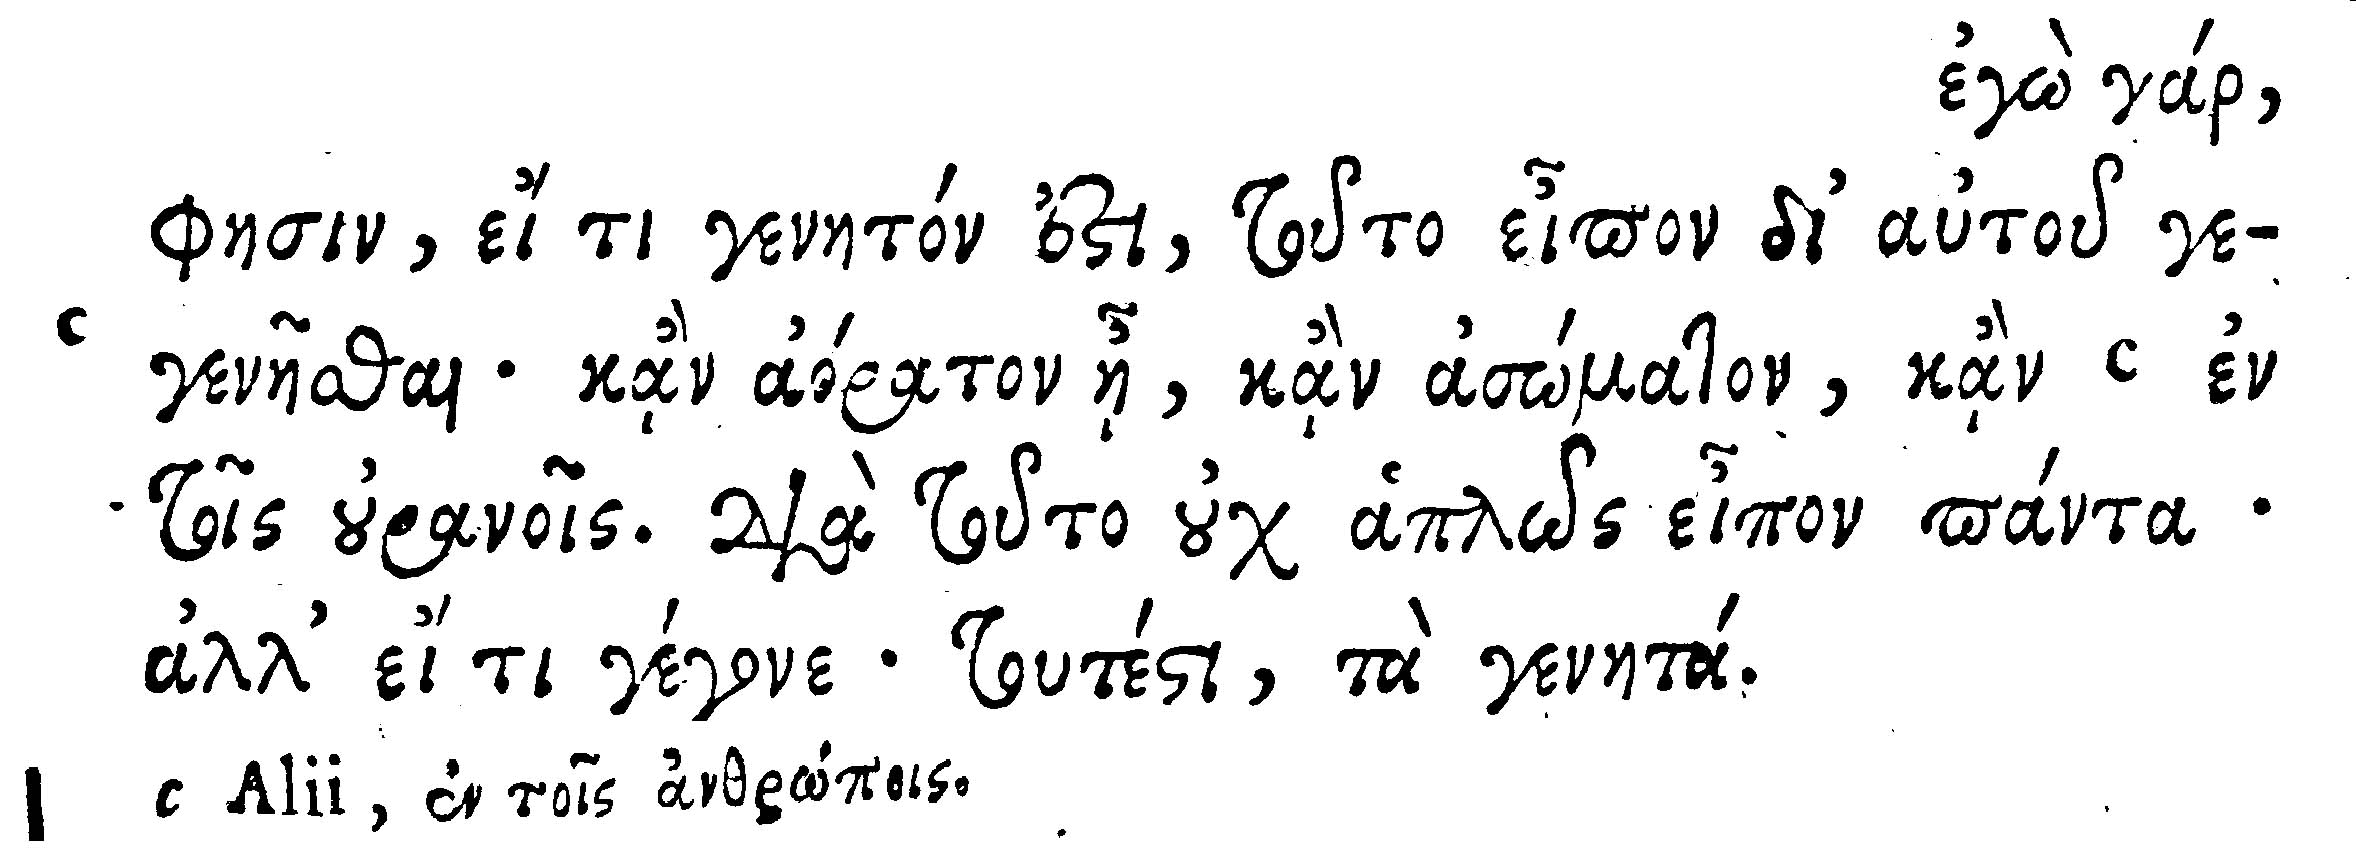 ἐγὼ γάρ,
φησιν, εἴ τι γενητόν ἐστι, τοῦτο εἶπον δι᾽ αὐτοῦ γε-
c γενῆσθαι· κᾂν ἀόρατον ᾖ, κᾂν ἀσώματον, κᾂν c ἐν
τοῖς οὐρανοῖς. διὰ τοῦτο οὐχ ἁπλῶς εἶπον πάντα·
ἀλλ᾽ εἴ τι γέγονε· τουτέστι, τὰ γενητά.
c Alii, ἐν τοῖς ἀνθρώποις.